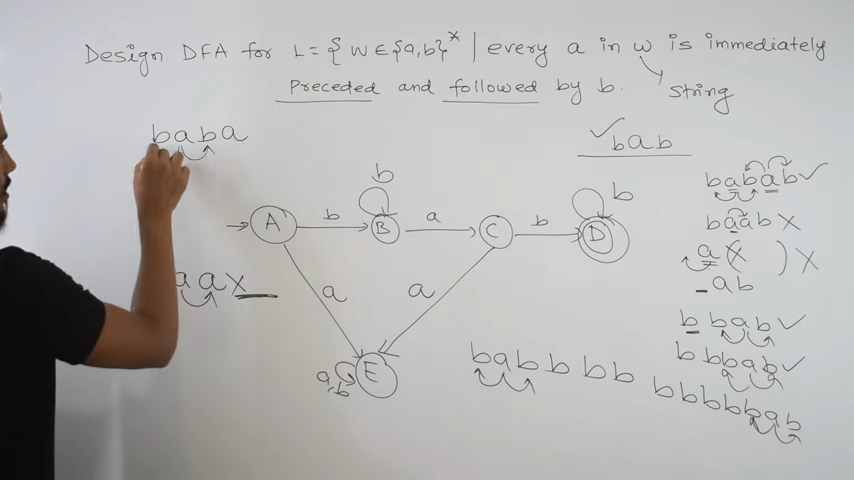 Design DFA for L = { W ∈ {a,b}* | every a in w is immediately
preceded and followed by b.
String
✓ bab
baba
babab ✓
baab X
a ( ) X
_ab
b bab ✓
b bbab ✓
bbbbbab
babb bb
aax
A b B a C b D
b
b
a
a
E
a,b